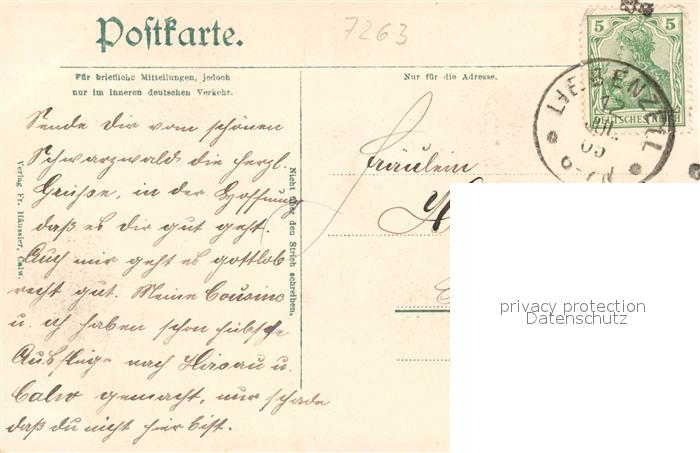 Postkarte.
7263
Für briefliche Mitteilungen, jedoch
nur im inneren deutschen Verkehr.
Nur für die Adresse.
5 5
DEUTSCHES REICH
LIEBENZELL
12
JUL.
05
Sende Dir vom schönen
Schwarzwald die herzl.
Grüße, in der Hoffnung
daß es dir gut geht.
Auch mir geht es gottlob
recht gut. Meine Cousine
u. ich haben schon hübsche
Ausflüge nach Hirsau u.
Calw gemacht, nur schade
daß du nicht hier bist.
Verlag Fr. Häussler, Calw.
Nicht über den Strich schreiben.
Fräulein
privacy protection
Datenschutz